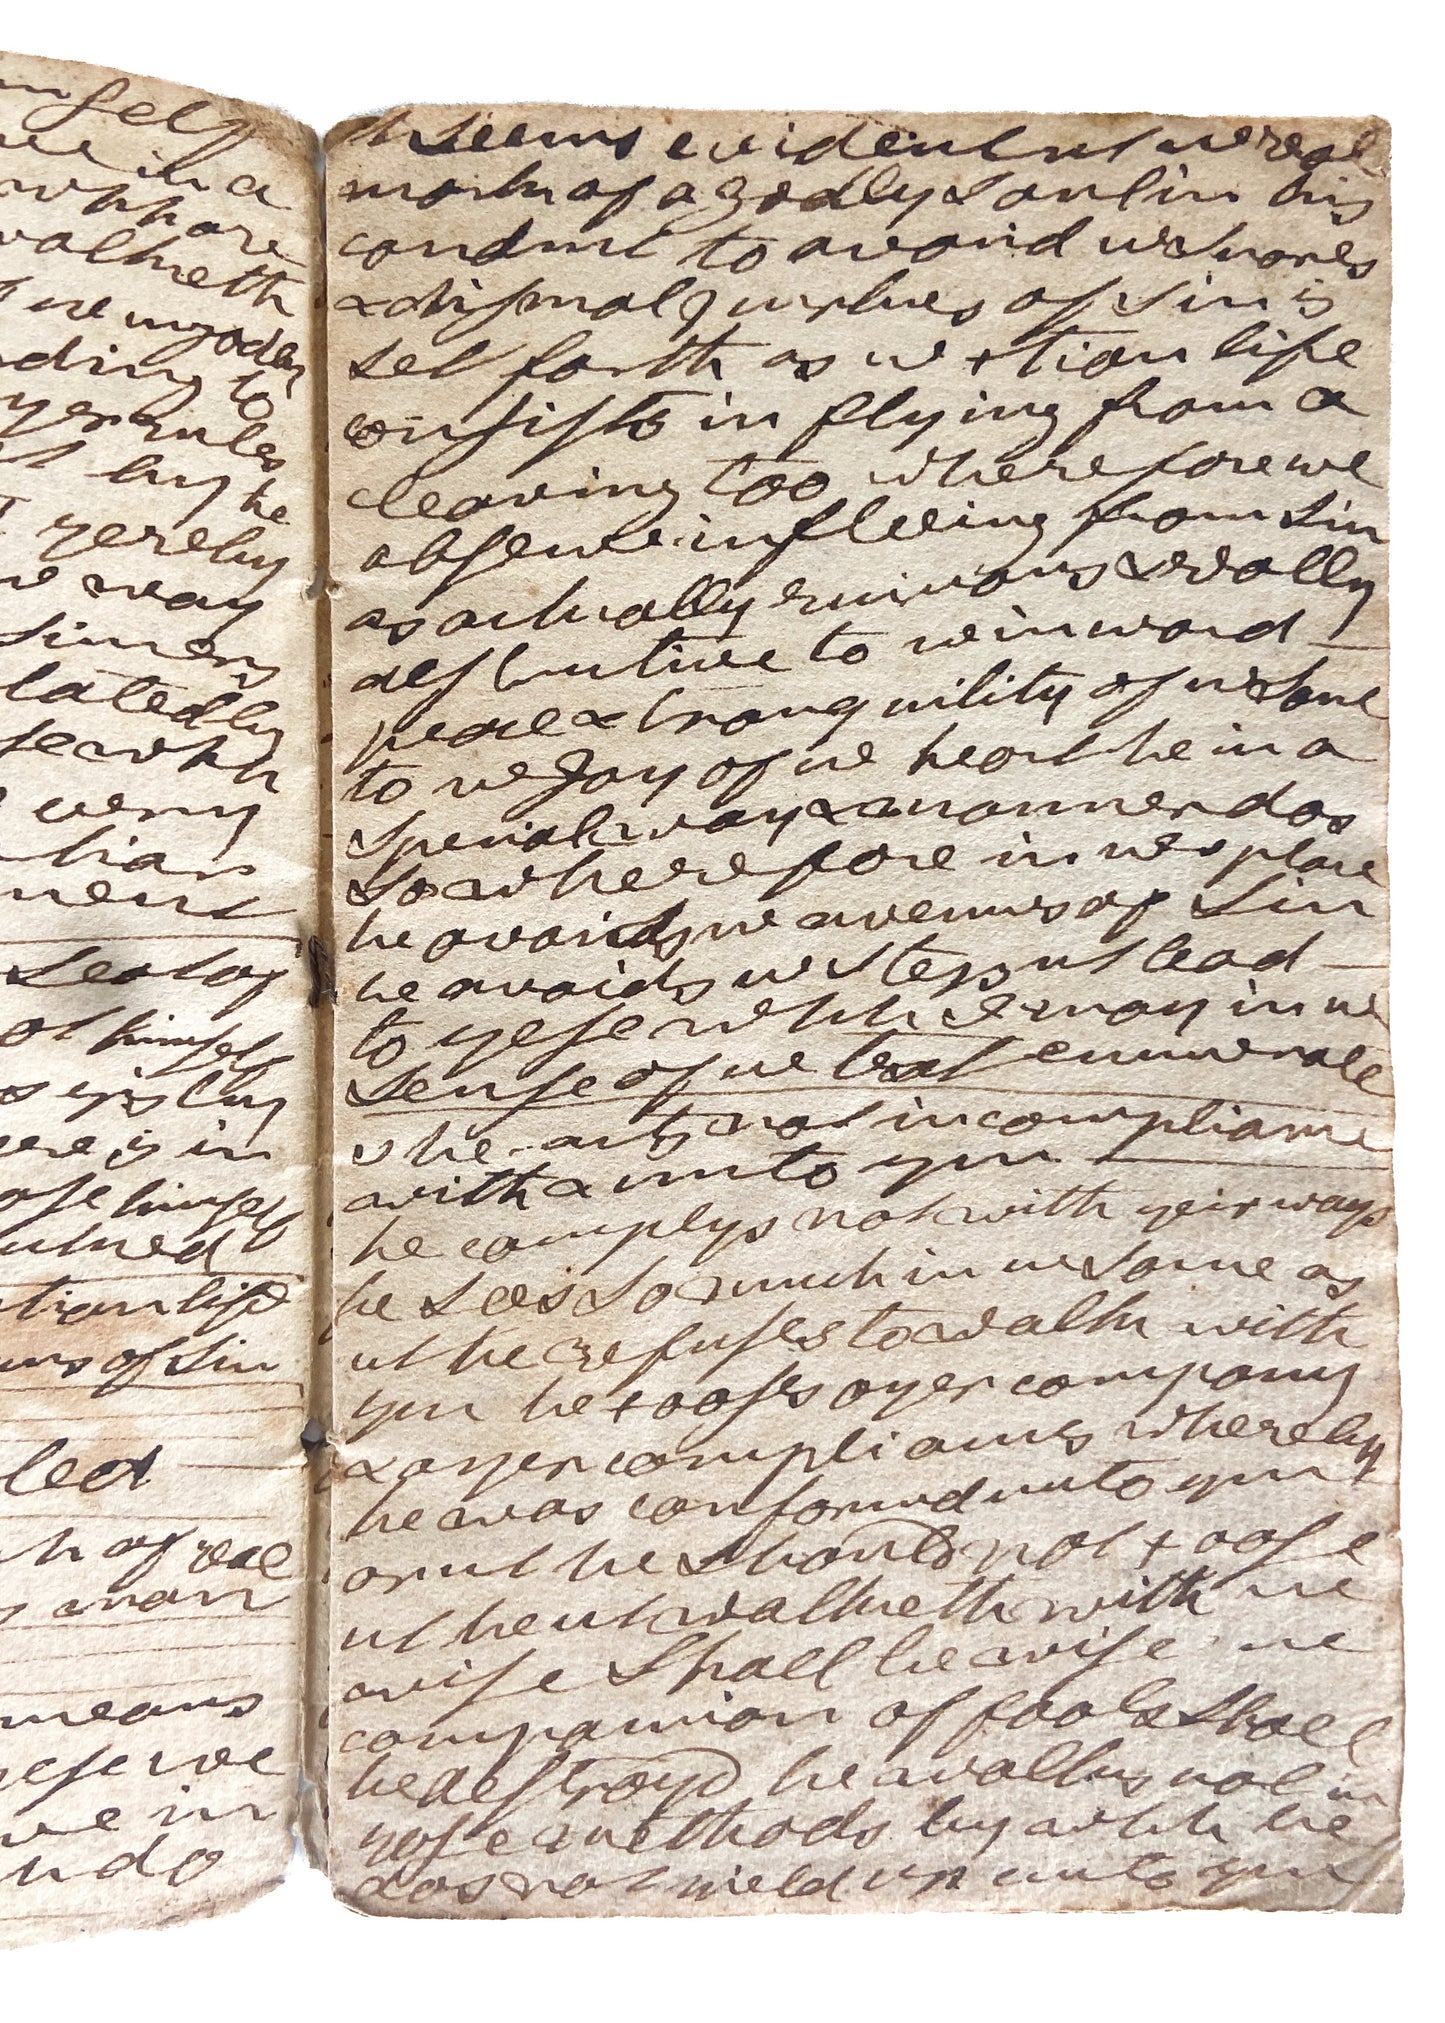 ngely
in a
whh are
walketh
ye ungodly
ding to
yer rules
by he
yereby
way
Siners
lated by
se whh
very
tian
ment
Seat of
ot himself
is ys by
ere is in
ose himself
tian life
of Sin
led
h of real
man
means
yese we
we in
do
it seems evident ut ue real
mark of a godly Soul in his
conduct to avoid ue Snares
& dismal of Sin is
set forth as ue +tian life
consists in flying from &
cleaving too wherefore we
absence in fleeing from Sin
as actually ruinous & really
destructive to ue inward
peace & tranquility of ue Soul
to ue Joy of ue heart he in a
special way & manner dos
So wherefore in ue place
he avoids ue avenues of Sin
he avoids ue Steps ut lead
to yese whh we may in ue
Sense of ue text enumerate
he acts not in compliance
with & unto ym
he complys not with yeir ways
he sees So much in ue Same as
ut he refuses to walk with
ym he +ooses oyer company
& oyer compliances whereby
he was conformed unto ym
or ut he Should not +oose
ut he ut walketh with ue
wise Shall be wise ue
companion of fools Shall
be destroyd he walks not in
yose methods by whh he
dos not yield up unto ym